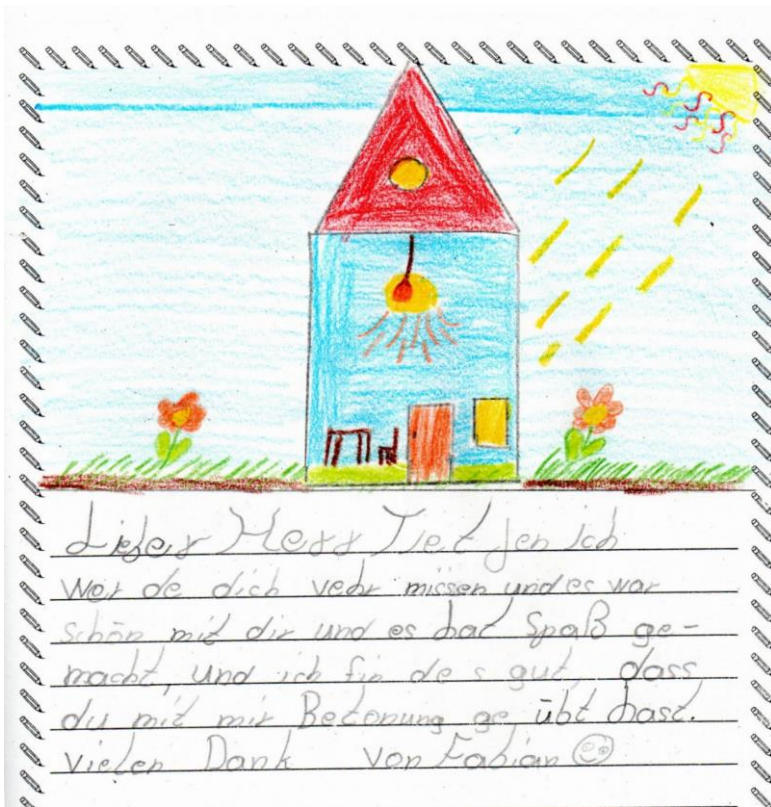 Lieber Herr Tietjen ich
wer de dich vehr missen und es war
schön mit dir und es hat Spaß ge-
macht, und ich fin de s gut, dass
du mit mir Betonung ge übt hast.
vielen Dank von Fabian